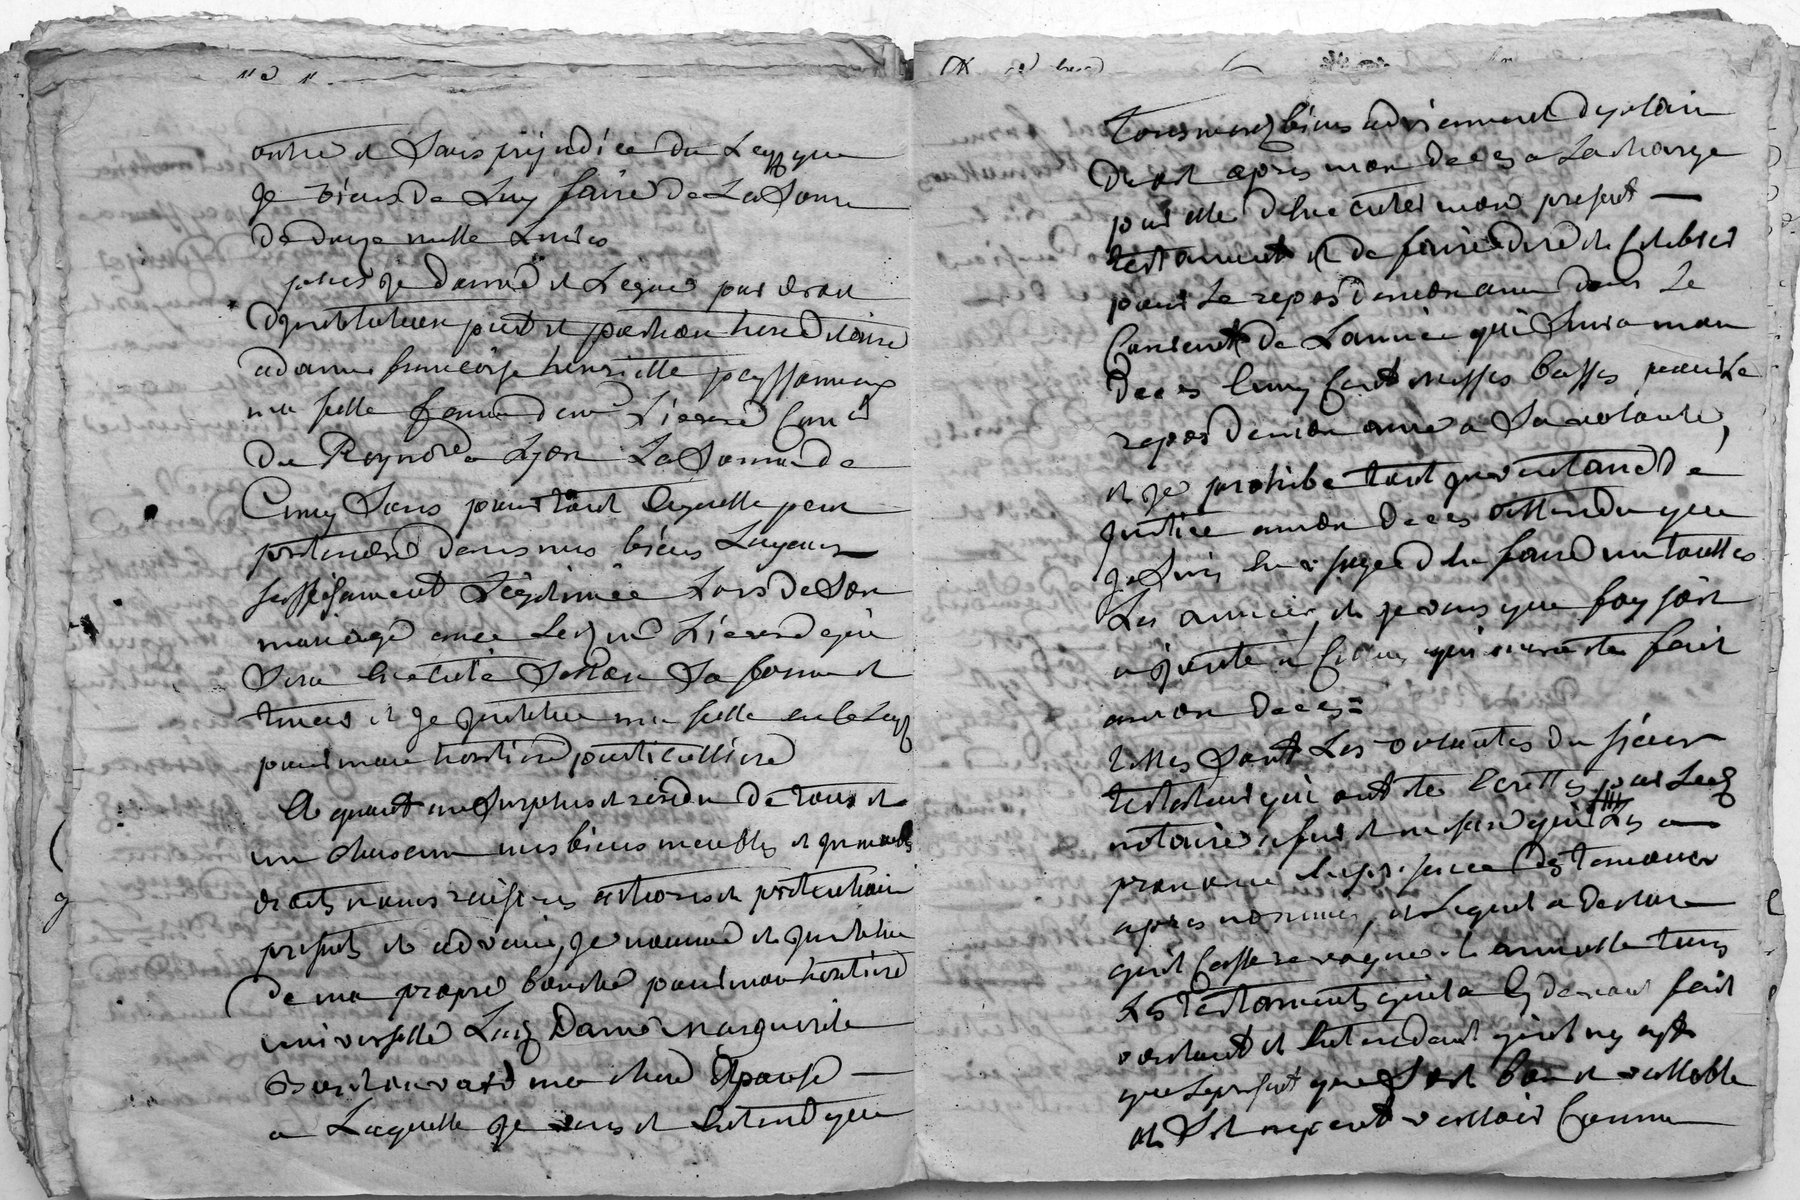 outre et sans prejudice du Legs que
Je viens de Luy faire de La Somme
de douze mille Livres
plus je donne et Legue par droit
dinstitution part et portion hereditaire
a dame francoise henriette peyssonneaux
ma fille femme de mr Liverd
de a Lyon La Somme de
Cinq Sous pour tout ce quelle peut
pretendre dans mes biens Layant
suffisament Legitimée Lors de Son
mariage avec Led mr Liverd qui
Sera Executé Selon Sa forme et
teneur et Je institue ma fille en ce Legs
pour mon heritiere particulliere
Et quant au Surplus et residu de tous et
un chascun mes biens meubles et immeubles
droits noms raisons actions et pretentions
presents et advenir, Je nomme et institue
de ma propre bouche pour mon heritiere
universelle Lad Dame Marguerite
ma chere Epouse
a Laquelle je veus et Entend que
tous mesd biens adviennent de plain
droit apres mon deces a La charge
par elle dexecuter mon present
testament et de faire dire et Celebrer
pour Le repos de mon ame dans Le
Courent de Lannée qui Suivra mon
deces Cinq Cent messes basses pour Le
repos de mon ame a Sa volonté,
et je prohibe tout inventaire de
justice a mon deces attendu que
Je Suis En usage den faire un toutes
Les années, et je veus que foy soit
ajoutée a Celuy qui aura été fait
a mon deces =
telles Sont Les volontés du sieur
testateur qui ont été Ecrittes par Led
notaire a fur et mesure qui Les a
prononcé En presence des temoins
apres nommés, et Lequel a declaré
quil Casse revoque et annulle tous
Les testaments quil a Cy devant fait
voulant et Entendant quil ny ayt
que Le present que Soit bon et vallable
et Sil ne peut valloir Comme